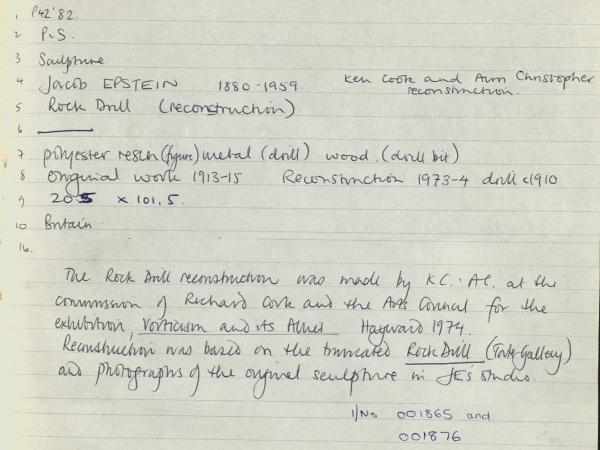 1 P42'82.
2 P.S.
3 Sculpture
4 Jacob EPSTEIN 1880-1959 Ken Cook and Ann Christopher
reconstruction.
5 Rock Drill (reconstruction)
6
7 polyester resin (figure) metal (drill) wood. (drill bit)
8 original work 1913-15 Reconstruction 1973-4 drill c1910
9 205 x 101.5.
10 Britain
16.
The Rock Drill reconstruction was made by KC. : AC. at the
commission of Richard Cork and the Arts Council for the
exhibition, Vorticism and its Allies Hayward 1974.
Reconstruction was based on the truncated Rock Drill (Tate Gallery)
and photographs of the original sculpture in JE's studio.
1/Nº 001865 and
001876